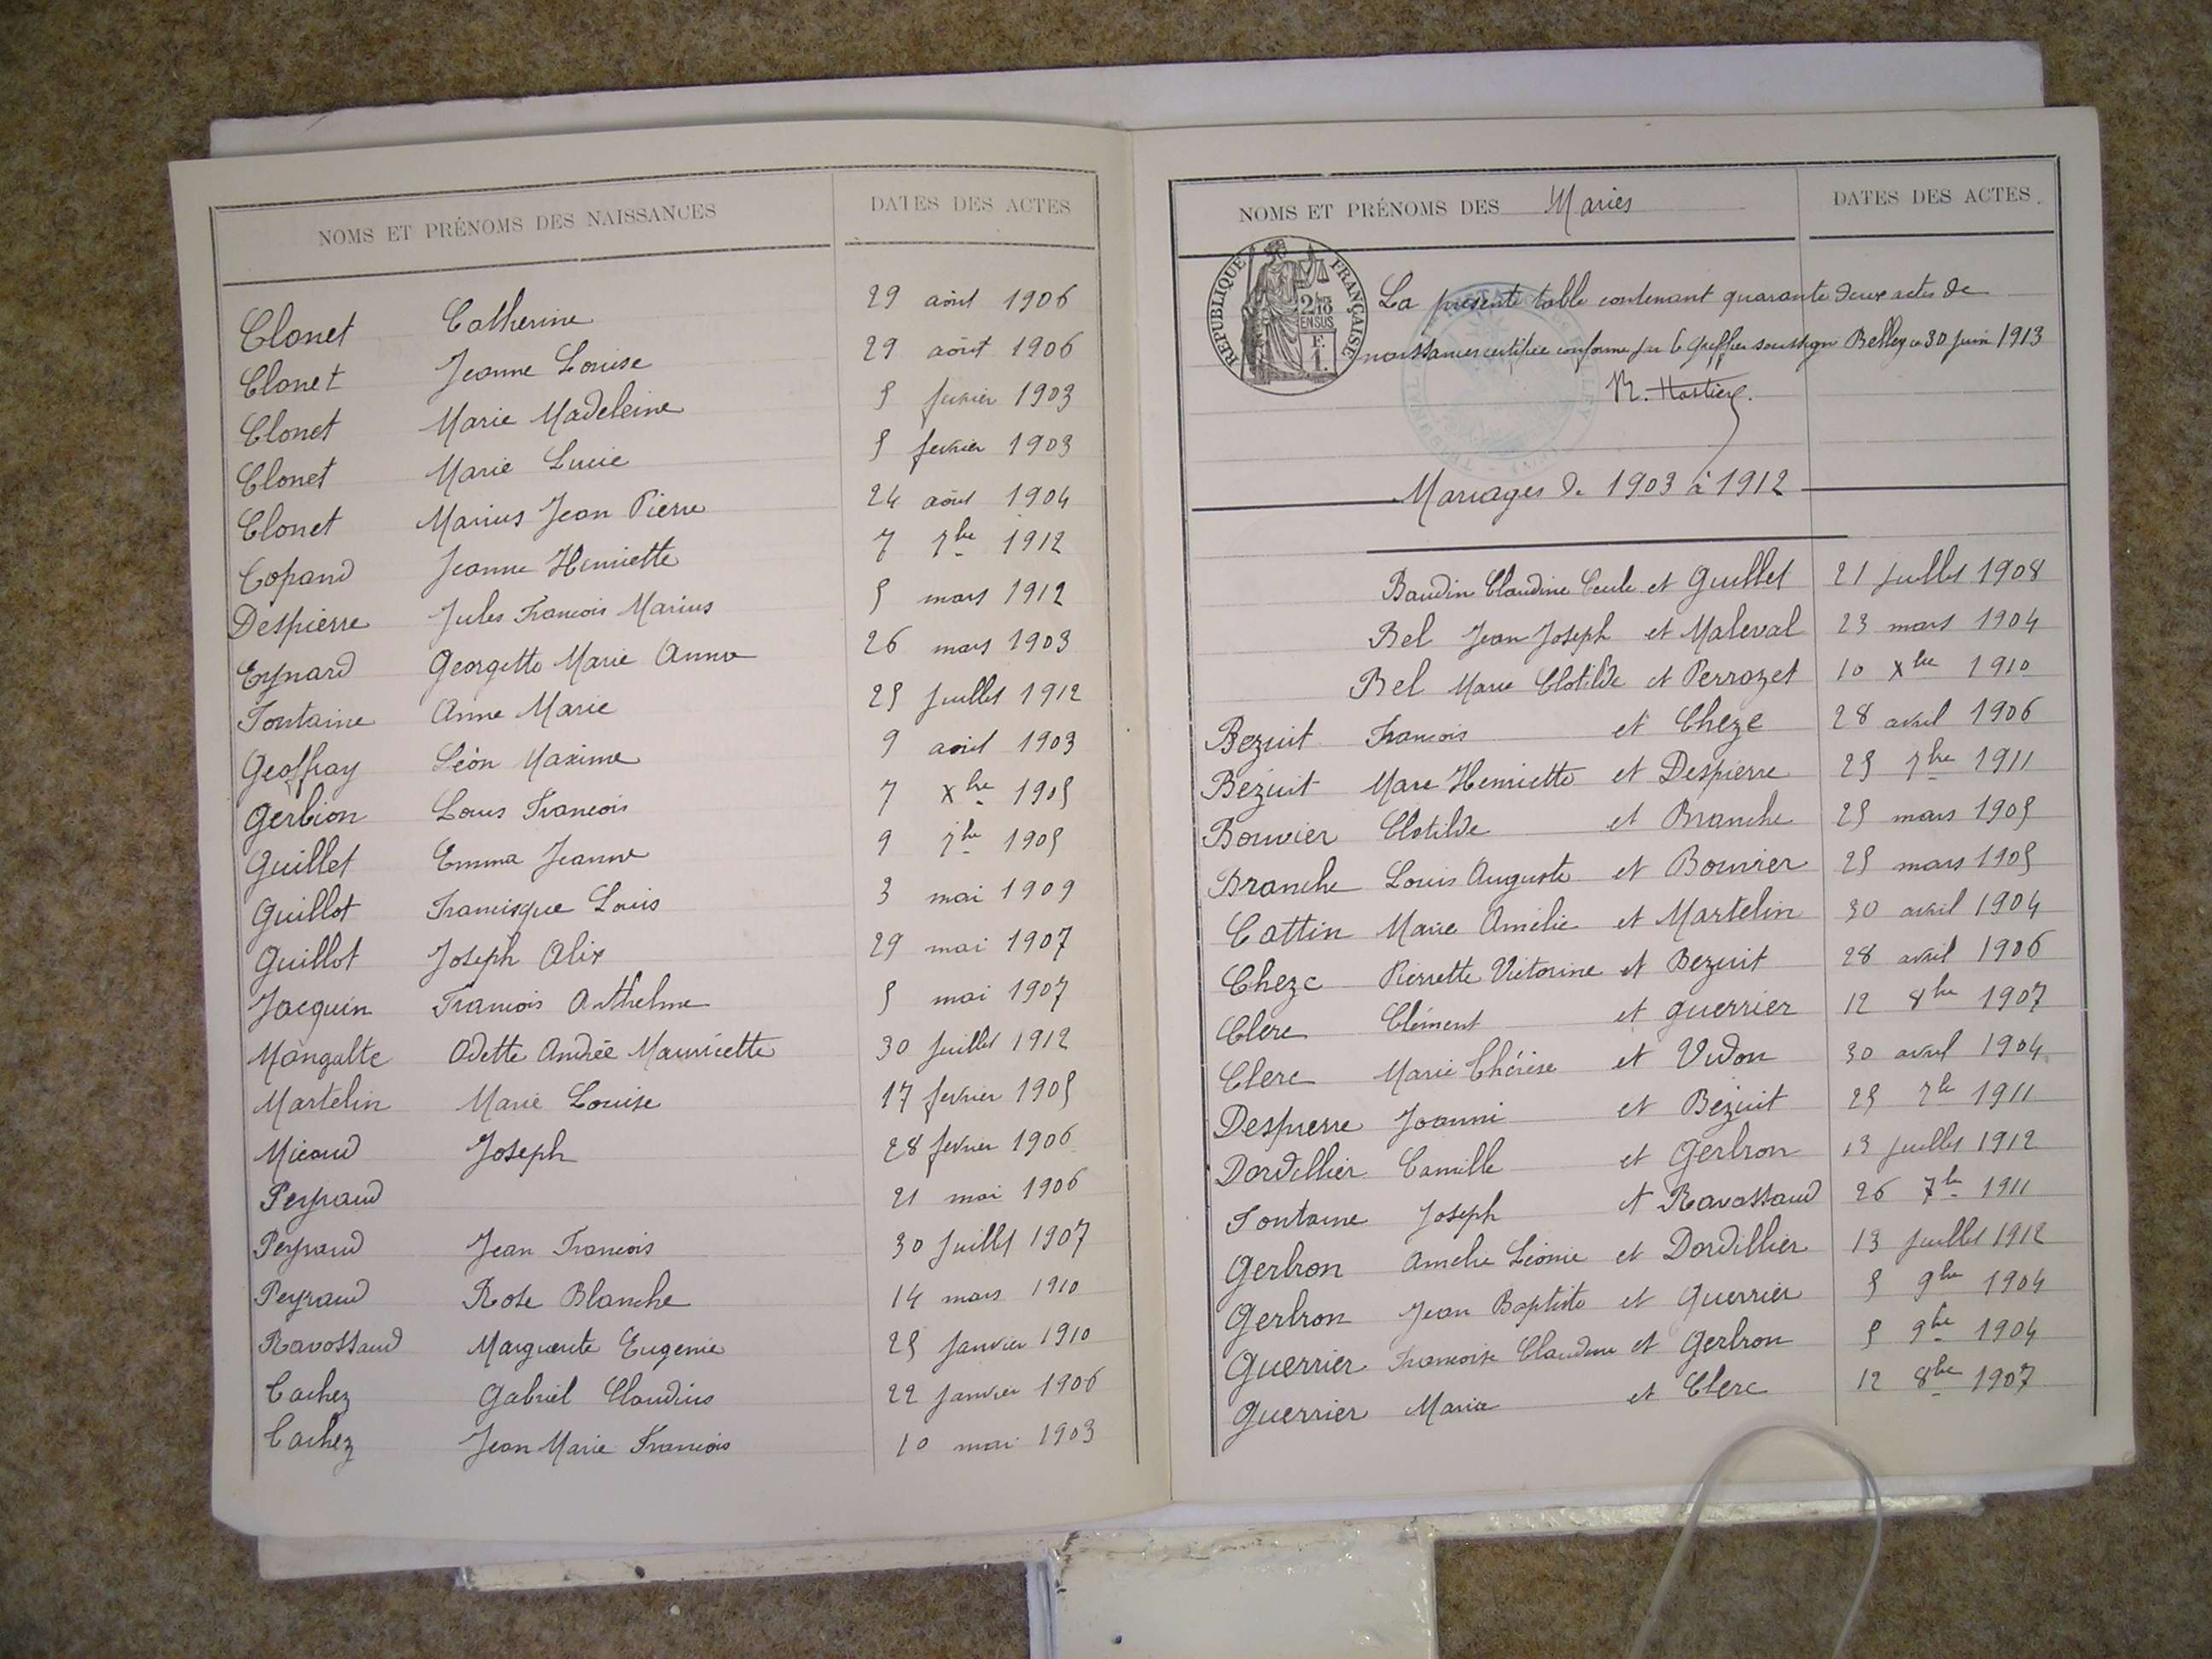 NOMS ET PRÉNOMS DES NAISSANCES DATES DES ACTES
Clonet Catherine 29 août 1906
Clonet Jeanne Louise 29 août 1906
Clonet Marie Madeleine 5 fevrier 1903
Clonet Marie Lucie 5 fevrier 1903
Clonet Marius Jean Pierre 24 août 1904
Copand Jeanne Henriette 7 7bre 1912
Despierre Jules Francois Marius 5 mars 1912
Eynard Georgette Marie Anna 26 mars 1903
Fontaine Anne Marie 25 juillet 1912
Geoffray Léon Maxime 9 août 1903
Gerbron Louis Francois 7 Xbre 1905
Guillet Emma Jeanne 9 7bre 1905
Guillot Francisque Louis 3 mai 1909
Guillot Joseph Alix 29 mai 1907
Jacquin Francois Anthelme 5 mai 1907
Mangalte Odette Andrée Mauricette 30 juillet 1912
Martelin Marie Louise 17 fevrier 1905
Micoud Joseph 28 fevrier 1906
Peyraud 21 mai 1906
Peyraud Jean Francois 30 juillet 1907
Peyraud Rose Blanche 14 mars 1910
Ravossaud Marguerite Eugenie 25 janvier 1910
Tachez Gabriel Claudius 22 janvier 1906
Tachez Jean Marie Francois 10 mai 1903
NOMS ET PRÉNOMS DES Mariés DATES DES ACTES.
REPUBLIQUE FRANÇAISE
2/10 EN SUS
F. 1.
La presente table contenant quarante deux actes de
naissances certifiée conforme par le greffier soussigné Belley ce 30 juin 1913
Mariages de 1903 à 1912
Baudin Claudine Cecile et Guillet 21 juillet 1908
Bel Jean Joseph et Maleval 23 mars 1904
Bel Marie Clotilde et Perrozet 10 Xbre 1910
Bezuit Francois et Cheze 28 avril 1906
Bezuit Marie Henriette et Despierre 25 7bre 1911
Bouvier Clotilde et Branche 25 mars 1905
Branche Louis Auguste et Bouvier 25 mars 1905
Cattin Marie Amélie et Martelin 30 avril 1904
Cheze Pierrette Victorine et Bezuit 28 avril 1906
Clerc Clément et Guerrier 12 8bre 1907
Clerc Marie Thérèse et Vudon 30 avril 1904
Despierre Joanni et Bezuit 25 7bre 1911
Dordillier Camille et Gerbron 13 juillet 1912
Fontaine Joseph et Ravossaud 26 7bre 1911
Gerbron Amelie Léonie et Dordillier 13 juillet 1912
Gerbron Jean Baptiste et Guerrier 5 9bre 1904
Guerrier Francoise Claudine et Gerbron 5 9bre 1904
Guerrier Maria et Clerc 12 8bre 1907